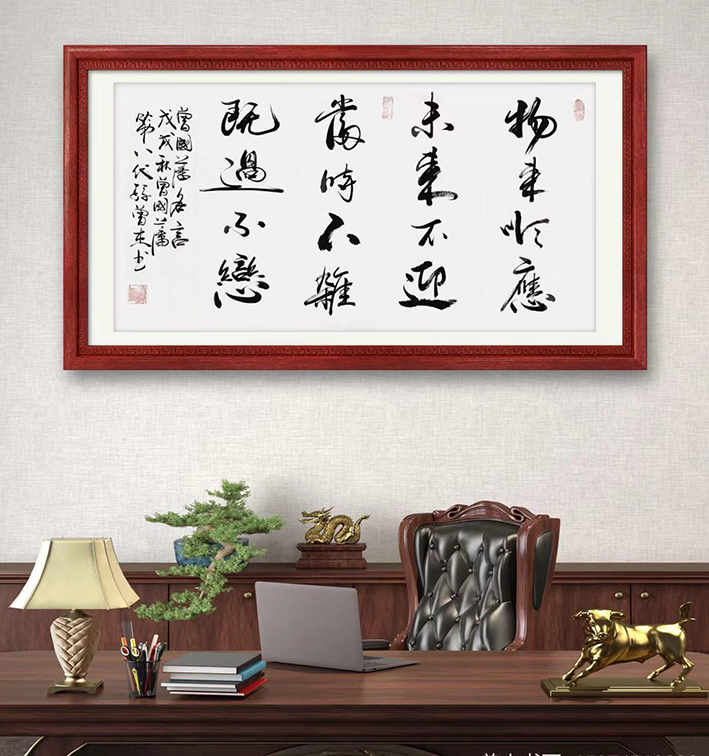 物来顺應
未来不迎
當时不雜
既過不戀
曾國藩名言
戊戌秋曾國藩
第八代孫曾书